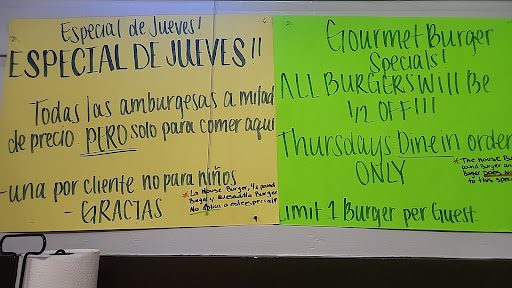 Especial de Jueves!
ESPECIAL DE JUEVES!!
Todas las amburgesas a mitad
de precio PERO solo para comer aqui
-una por cliente no para niños
- GRACIAS
* La House Burger, 1/2 pound
Burger y Quesadilla Burger
No Aplica a este especial
Gourmet Burger
Specials!
ALL BURGERS WILL Be
1/2 OFF!!!
Thursdays Dine in order
ONLY
* The House Bu
pound Burger an
Burger DOES NO
to this spec
Limit 1 Burger per Guest